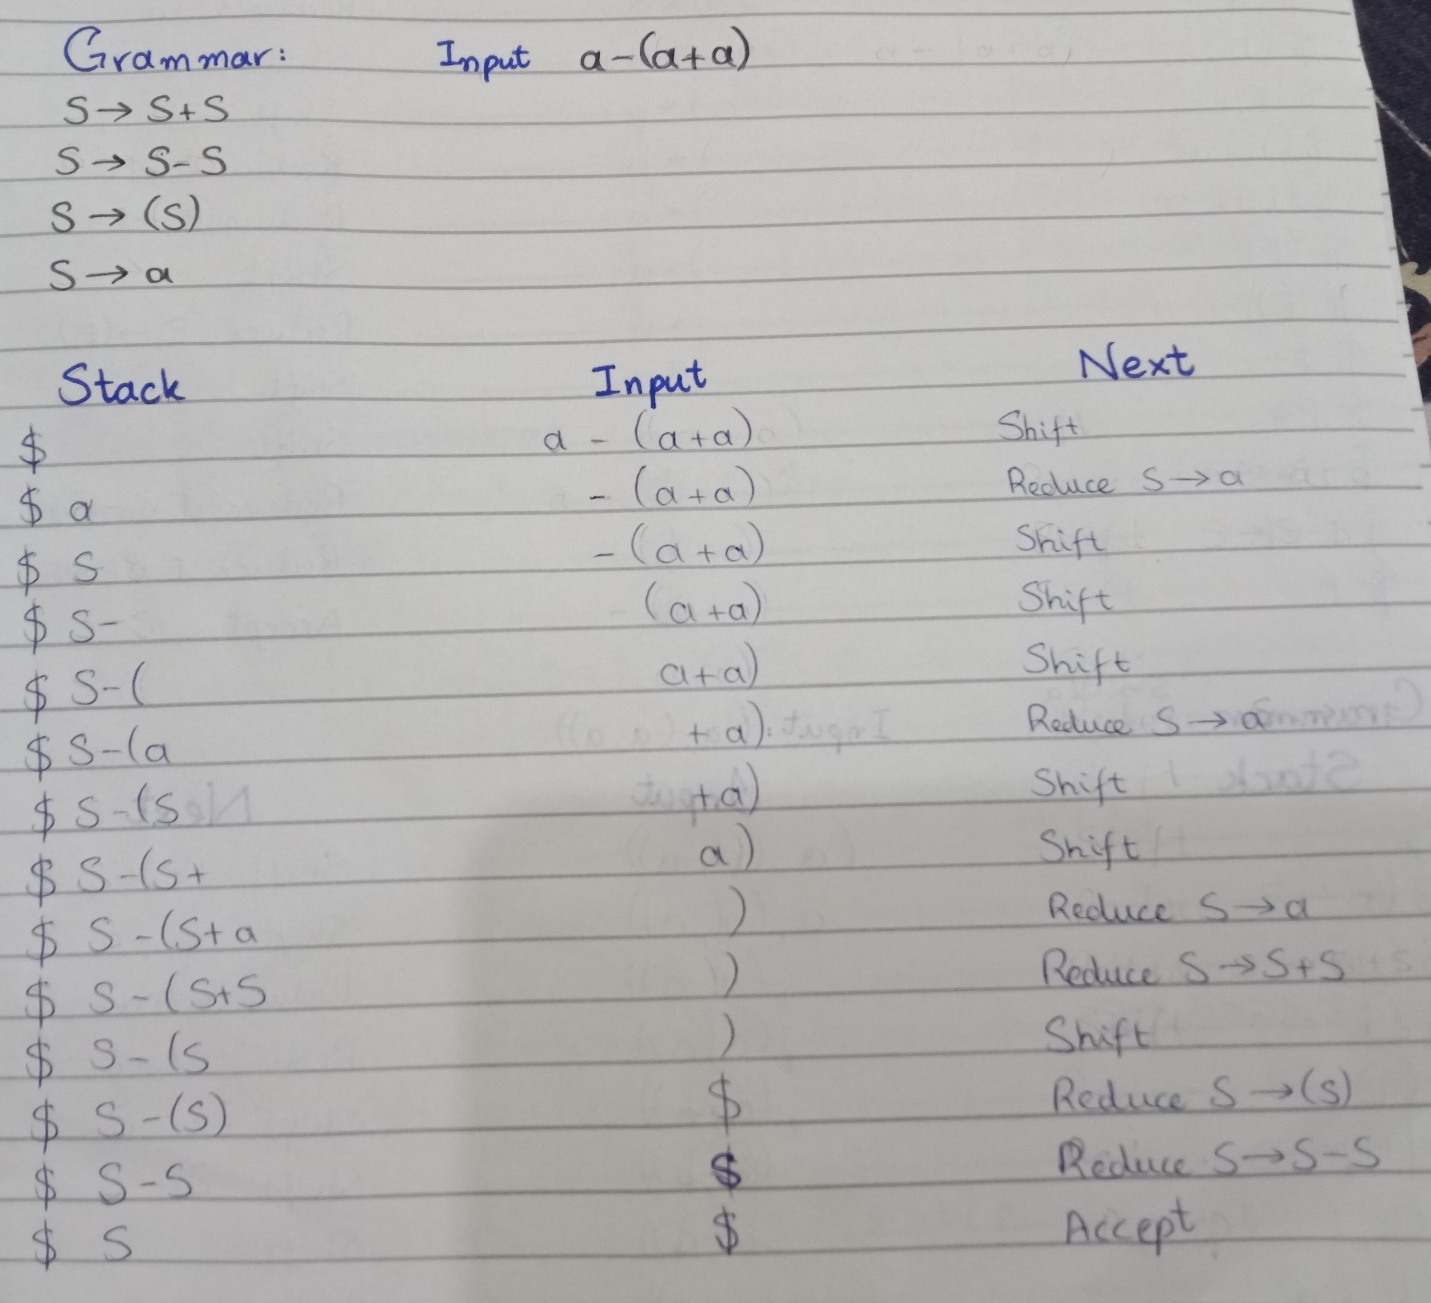 Grammar: Input a-(a+a)
S→S+S
S→S-S
S→(S)
S→a
Stack Input Next
$ a - (a+a) Shift
$ a - (a+a) Reduce S→a
$ S -(a+a) Shift
$ S- (a+a) Shift
$ S-( a+a) Shift
$ S-(a +a) Reduce S→a
$ S-(S +a) Shift
$ S-(S+ a) Shift
$ S-(S+a ) Reduce S→a
$ S-(S+S ) Reduce S→S+S
$ S-(S ) Shift
$ S-(S) $ Reduce S→(S)
$ S-S $ Reduce S→S-S
$ S $ Accept